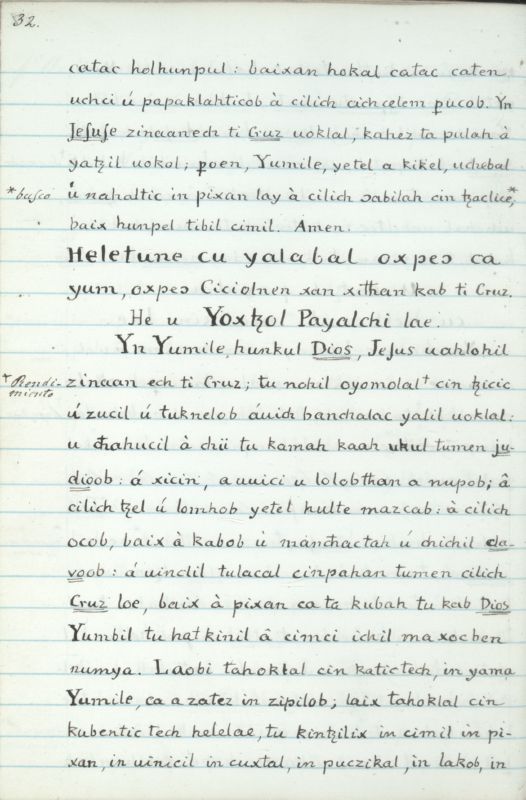 32.
catac holhunpul: baixan hokal catac caten
uchci ú papaklahticob à cilich cichcelem pucob. Yn
Jesuse zinaanech ti Cruz uoklal, kahez ta pulah à
yatzil uokol; poen, Yumile, yetel a kikel, uchebal
* busco
ú nahaltic in pixan lay à cilich ɔabilah cin tzaclice*,
baix hunpel tibil cimil. Amen.
Heletune cu yalabal oxpeɔ ca
yum, oxpeɔ Ciciolnen xan xithan kab ti Cruz.
He u Yoxtzol Payalchi lae.
Yn Yumile, hunkul Dios, Jesus uahlohil
+ Rendi-
miento
zinaan ech ti Cruz; tu nohil oyomolal+ cin tzicic
ú zucil ú tuknelob áuich banchalac yalil uoklal:
u chahucil à chii tu kamah kaah ukul tumen ju-
dioob: á xicin, a uuici u lolobthan a nupob; â
cilich tzel ú lomhob yetel hulte mazcab: à cilich
ocob, baix à kabob ù manchactah ú chichil cla-
voob: á uinclil tulacal cinpahan tumen cilich
Cruz loe, baix à pixan ca ta kubah tu kab Dios
Yumbil tu hatkinil â cimci ichil maxocben
numya. Laobi tahoklal cin katictech, in yama
Yumile, ca a zatez in zipilob; laix tahoklal cin
kubentic tech helelae, tu kintzilix in cimil in pi-
xan, in uinicil in cuxtal, in puczikal, in lakob, in